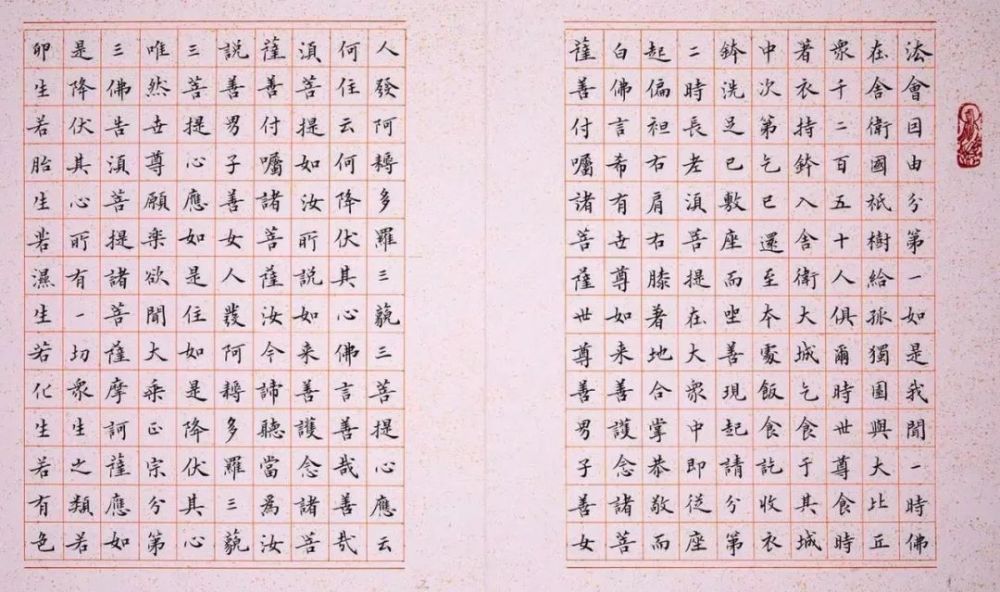 法會因由分第一如是我聞一時佛
在舍衛國祇樹給孤獨園與大比丘
眾千二百五十人俱爾時世尊食時
著衣持鉢入舍衛大城乞食于其城
中次第乞已還至本處飯食訖收衣
鉢洗足已敷座而坐善現起請分第
二時長老湏菩提在大眾中即從座
起偏袒右肩右膝著地合掌恭敬而
白佛言希有世尊如来善護念諸菩
薩善付囑諸菩薩世尊善男子善女
人發阿耨多羅三藐三菩提心應云
何住云何降伏其心佛言善哉善哉
湏菩提如汝所說如来善護念諸菩
薩善付囑諸菩薩汝今諦聽當為汝
說善男子善女人發阿耨多羅三藐
三菩提心應如是住如是降伏其心
唯然世尊願樂欲聞大乘正宗分第
三佛告湏菩提諸菩薩摩訶薩應如
是降伏其心所有一切眾生之類若
卵生若胎生若濕生若化生若有色